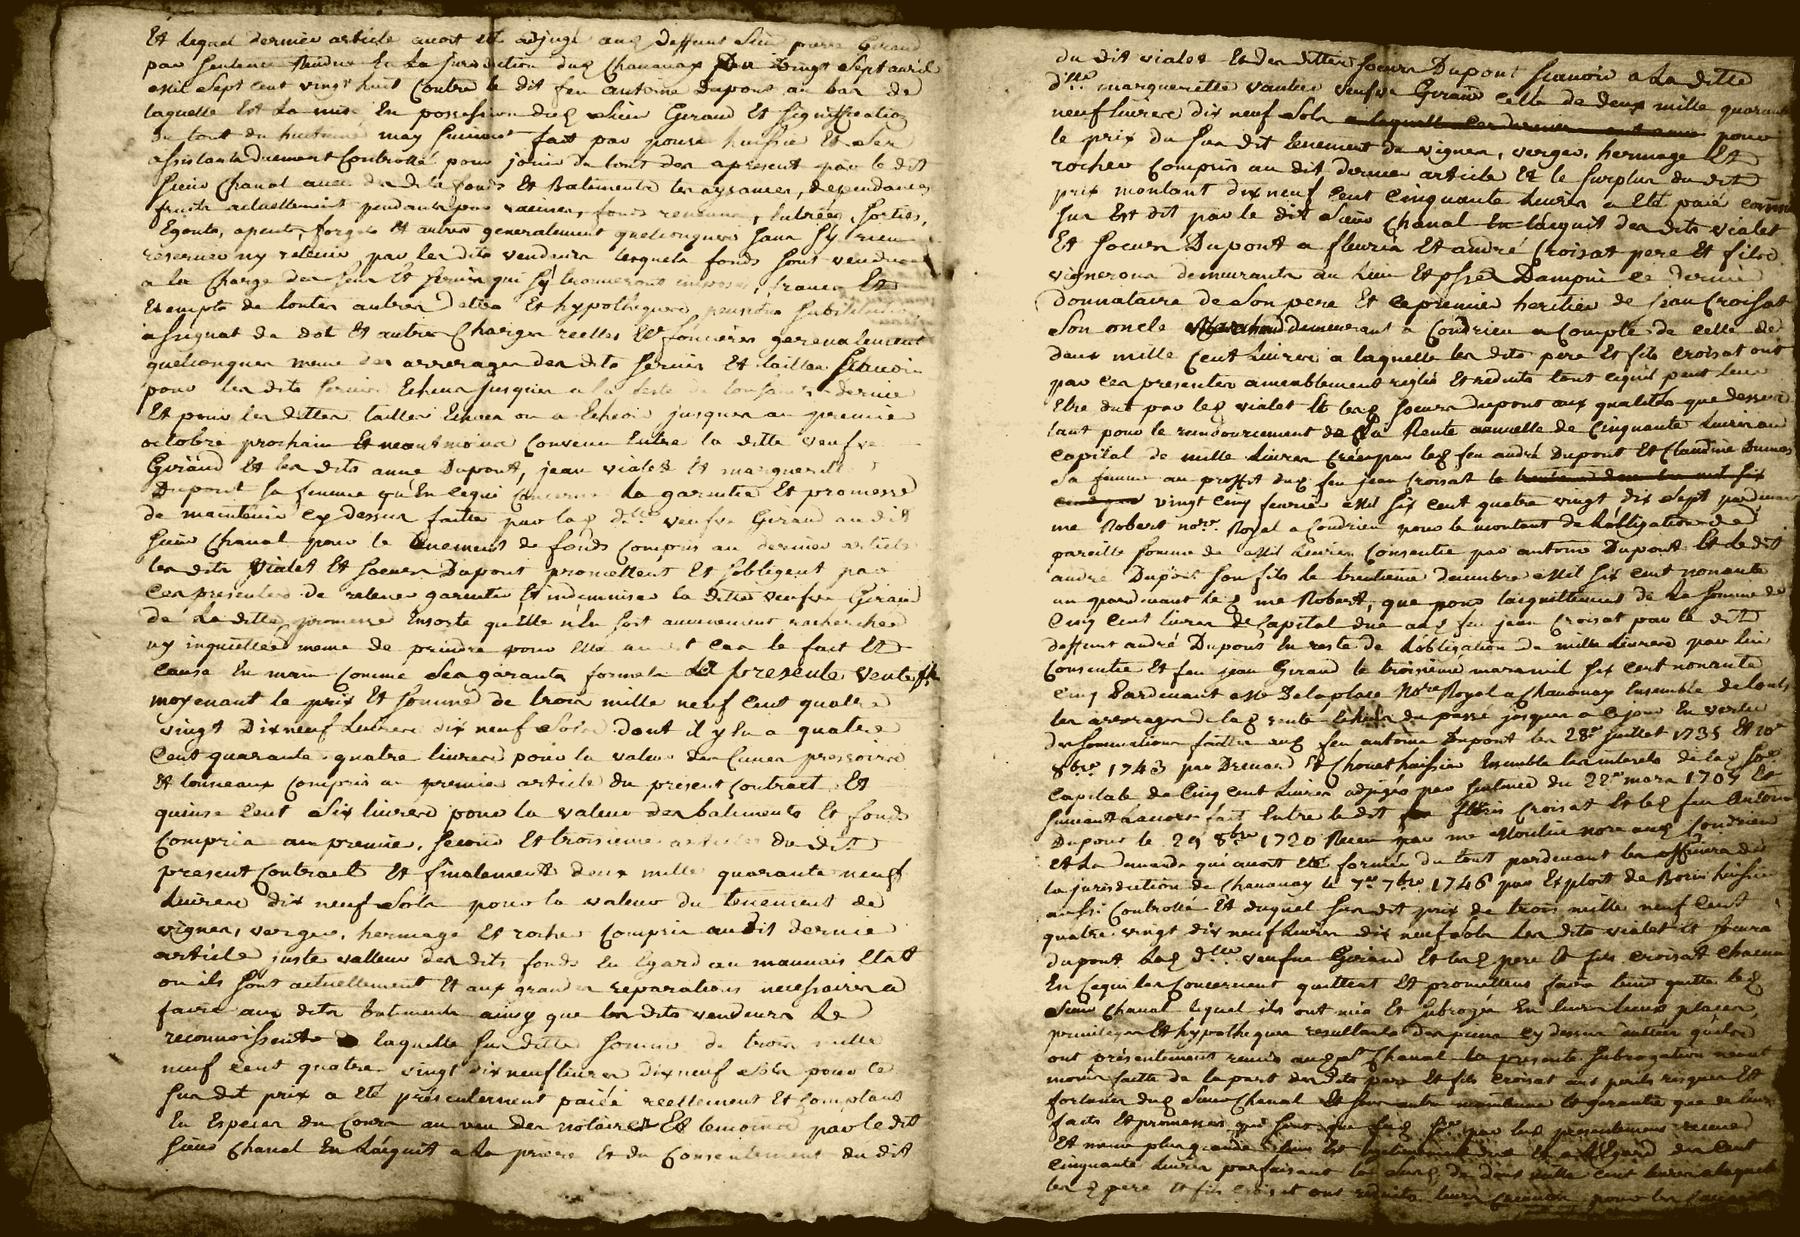 Et lequel dernier article avoit été adjugé aud deffunt Sieur pierre Giraud
par sentence Rendue En la jurisdiction dud Chavanay Du vingt Sept avril
mil Sept cent vingt huit Contre le dit feu antoine Dupont au bas de
laquelle Est La mise En possession dud Sieur Giraud Et Signiffication
du tout du huitieme may Suivant fait par huissier Et Ses
assistants duement Controllé pour jouir du tout des apresent par le dit
Sieur Chanal avec des dits fonds Et Batiments les aysances, dependances
fruits actuellement pendants par racines, fonds , Entrées, Sorties,
Egouts, , forges Et autres generalement quelconques Sans Sy rien
reserver ny retenir par les dits vendeurs lesquels fonds Sont vendus
a la Charge des Et Servis qui Sy trouveront imposés, francs Et
Exempts de toutes autres dettes Et hypothèques, pension Substitution
assignat de dot Et autres Charges reelles Et foncieres generalement
quelconques meme des arrerages des dits Servis Et tailles Scavoir
pour les dits Servis Echeus jusques a la feste de toussaints dernier
Et pour les dittes tailles Echeus ou a Echeoir jusques au premier
octobre prochain Et neantmoins Convenu Entre la ditte veufve
Giraud Et les dits anne Dupont, jean vialet Et marguerite
Dupont Sa femme qu'En cequi Concerne La garantie Et promesse
de maintenir cy dessus faitte par lad dlle veufve Giraud audit
Sieur Chanal pour le tenement de fonds Compris au dernier article
les dits Vialet Et Soeurs Dupont promettent Et Sobligent par
Ces presentes de relever garantir Et indemniser la ditte veufve Giraud
de La ditte promesse Ensorte qu'Elle n'En Soit aucunement recherchée
ny inquiettée meme de prendre pour Elle au Cas le fait Et
cause En main Comme Ses garants formels La presente vente
moyenant le prix Et Somme de trois mille neuf Cent quatre
vingt Dixneuf Livres dix neuf Sols dont il y En a quatre
Cent quarante quatre livres pour la valeur des Cuves pressoirs
Et tonneaux Compris au premier article du present Contract Et
quinse Cent Six livres pour la valeur des batiments Et fonds
Compris aux premier, Second Et troisieme articles du dit
present Contract Et finalement deux mille quarante neuf
Livres dix neuf Sols pour la valeur du tenement de
vignes, verger, hermage Et rocher Compris audit dernier
article juste valleur des dits fonds En Egard au mauvais Etat
ou ils Sont actuellement Et aux grandes reparations necessaires a
faire aux dits batiments ainsy que les dits vendeurs Le
reconnoissent laquelle Susditte Somme de trois mille
neuf cent quatre vingt dixneuf livres dixneuf Sols pour le
Susdit prix a Eté présentement paiée reellement Et Comptant
En Especes du Cours au veu des notaires Et temoins par ledit
Sieur Chanal En L'acquit a la priere Et du Consentement du dit
du dit vialet Et des dittes Soeurs Dupont Scavoir a La ditte
dlle marguerite veufve Giraud Celle de deux mille quarante
neuf livres dix neuf Sols pour
le prix du Susdit tenement de vignes, verger, hermage Et
rocher Compris au dit dernier article Et le Surplus du dit
prix montant dixneuf Cent Cinquante livres a Eté paié comme
Sus Est dit par le dit Sieur Chanal En l'acquit des dits vialet
Et Soeurs Dupont a fleuris Et andré Croisat pere Et fils
vignerons demeurants au Lieu Et psse Dampui ce dernier
donnataire de Son pere Et Cepremier heritier de jean Croisat
Son oncle demeurant a Condrieu a Compte de celle de
deux mille Cent Livres a laquelle les dits pere Et fils Croisat ont
par ces presentes amiablement reglé Et reduits tout cequi peut Leur
Etre dut par led vialet Et lesd Soeurs dupont aux qualités que dessus
tant pour le remboursement de La Rente annuelle de Cinquante Livres au
Capital de mille Livres Créée par led feu andré Dupont Et Claudine Dumas
Sa femme au proffit dud feu jean Croisat le
vingt Cinq fevrier Mil Six Cent quatre vingt dix Sept pardevant
me Robert nore Royal a Condrieu pour le montant de L'obligation de
pareille Somme de Mil Livres Consentie par antoine Dupont Et Ledit
andré Dupont Son fils le trentieme decembre Mil Six Cent nonante
un pardevant led me Robert, que pour l'acquittement de La Somme de
Cinq Cent Livres de Capital due aud feu jean Croisat par le dit
deffunt andré Dupont En reste de L'obligation de mille Livres par lui
Consentie Et feu jean Giraud le troisieme mars mil Six Cent nonante
Cinq Pardevant Me Delaplace Nore Royal a Chavanay Ensemble de tous
les arrerages de lad rente Echeus du passé jusques a Cejour En vertu
des Sommations faittes aud feu antoine Dupont les 28e juillet 1735 Et 10e
8bre 1743 par Et Chouet huissier Ensemble les interets de lad Sme
Capitale de Cinq Cent Livres adjugés par Sentence du 22e mars 1709 Et
Suivant l'accord fait Entre le dit Croisat Et led feu antoine
Dupont le 29 8bre 1720 Receu par me Moulin nore aud Condrieu
Et La demande qui avoit Eté formée du tout pardevant les officiers de
la jurisdiction de Chavanay le 7e 7bre 1746 par Exploit de huissier
aussi Controllé Et duquel Susdit prix de trois mille neuf Cent
quatre vingt dix neuf livres dix neuf Sols Les dits vialet Et Soeurs
dupont lad dlle veufve Giraud Et lesd pere Et fils Croisat Chacun
En Cequi les Concernent quittent Et promettent faire tenir quitte led
Sieur Chanal lequel ils ont mis Et Subrogés En leurs lieux places,
privileges Et hypotheques resultants des pieces cy dessus dattées qu'ils
ont présentement remis aud Sr Chanal la presente Subrogation neant
moins faitte de la part des dits pere Et fils Croisat aux perils risques Et
fortunes dud Sieur Chanal Et Sans autre Et garantie que de leurs
faits Et promesses
Et
Cinquante Livres parfaisant de deux mille Cent livres a laquelle
les d pere Et fils Croisat ont reduits leurs